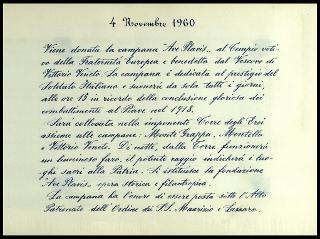 4 Novembre 1960
Viene donata la campana Ave Plavis, al Tempio voti-
vo della Fraternità Europea e benedetta dal Vescovo di
Vittorio Veneto. La campana è dedicata al prestigio del
Soldato Italiano e suonerà da sola tutti i giorni,
alle ore 15 in ricordo della conclusione gloriosa dei
combattimenti al Piave nel 1918.
Sarà collocata nella imponente Torre degli Eroi
assieme alle campane: Monte Grappa, Montello
e Vittorio Veneto. Di notte, dalla Torre funzionerà
un luminoso faro, il potente raggio indicherà i luo-
ghi sacri alla Patria. Si istituisce la fondazione
"Ave Plavis" opera storica e filantropica.
La campana ha l'onore di essere posta sotto l'Alto
Patronale dell'Ordine dei SS. Maurizio e Lazzaro.